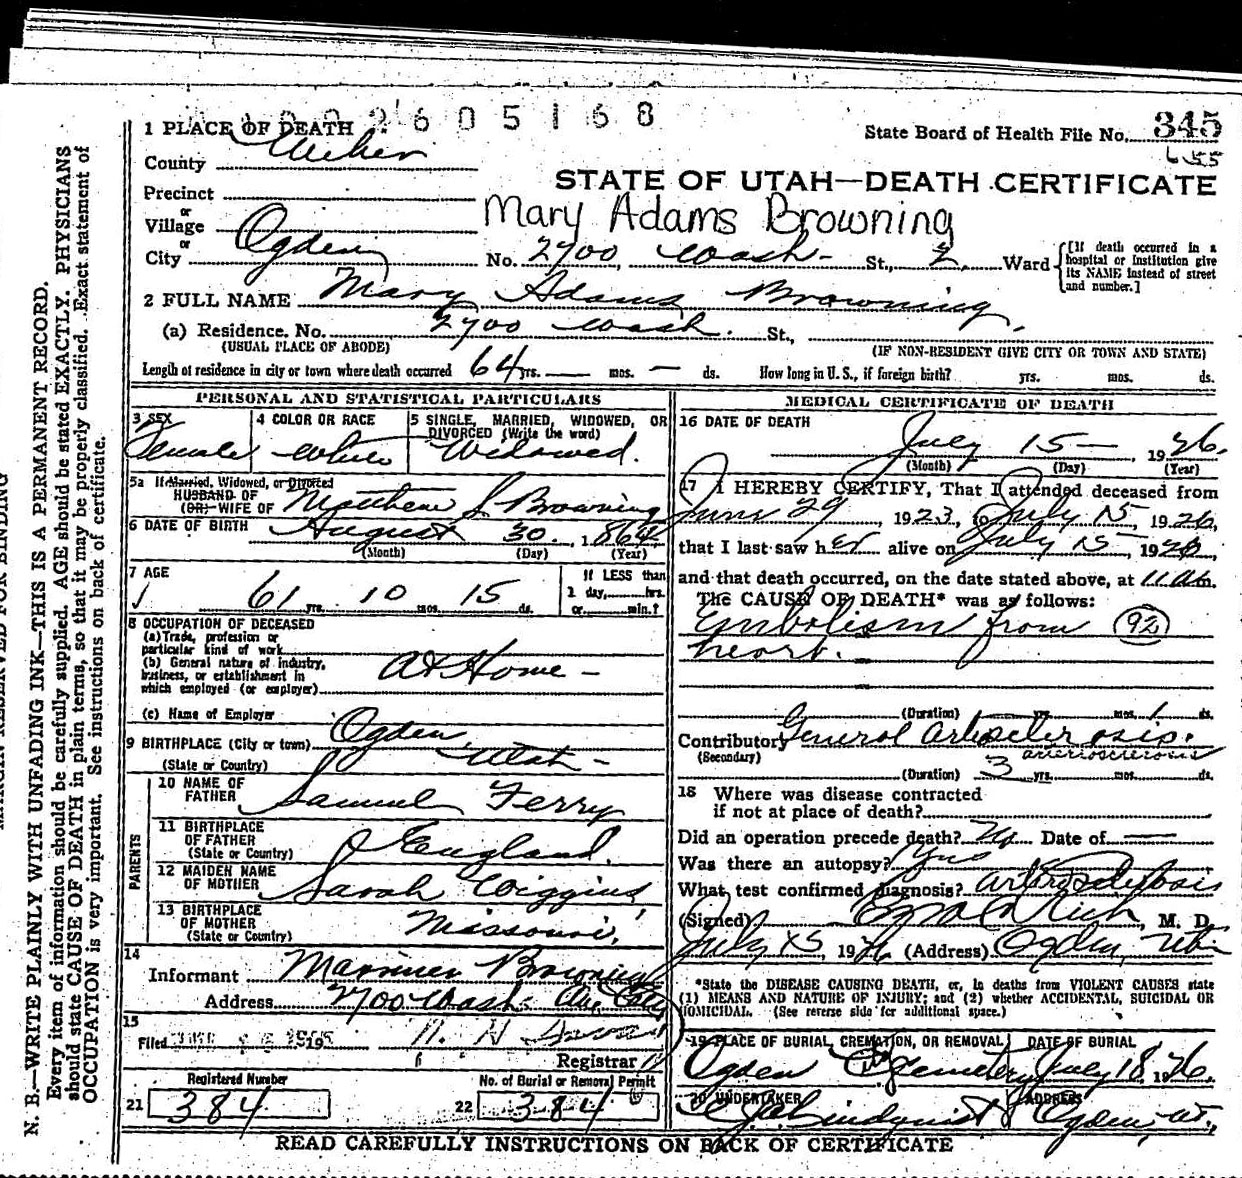 2605168
1 PLACE OF DEATH
State Board of Health File No. 345
655
County Weber
STATE OF UTAH—DEATH CERTIFICATE
Precinct
or
Village
Mary Adams Browning
or
City Ogden No. 2700 Wash- St., 2 Ward
[If death occurred in a hospital or institution give its NAME instead of street and number.]
2 FULL NAME Mary Adams Browning.
(a) Residence, No. 2700 Wash. St.,
(USUAL PLACE OF ABODE) (IF NON-RESIDENT GIVE CITY OR TOWN AND STATE)
Length of residence in city or town where death occurred 64 yrs. — mos. — ds. How long in U. S., if foreign birth? yrs. mos. ds.
PERSONAL AND STATISTICAL PARTICULARS
3 SEX
Female
4 COLOR OR RACE
White
5 SINGLE, MARRIED, WIDOWED, OR DIVORCED (Write the word)
Widowed.
5a If Married, Widowed, or Divorced
HUSBAND OF
(OR) WIFE OF Matthew S. Browning
6 DATE OF BIRTH August 30, 1864
(Month) (Day) (Year)
7 AGE
61 yrs. 10 mos. 15 ds.
If LESS than
1 day, hrs.
or min.?
8 OCCUPATION OF DECEASED
(a) Trade, profession or
particular kind of work
(b) General nature of industry,
business, or establishment in
which employed (or employer)
At Home -
(c) Name of Employer
9 BIRTHPLACE (City or town) Ogden
(State or Country) Utah -
PARENTS
10 NAME OF
FATHER Samuel Ferry
11 BIRTHPLACE
OF FATHER
(State or Country) England.
12 MAIDEN NAME
OF MOTHER Sarah Wiggins
13 BIRTHPLACE
OF MOTHER
(State or Country) Missouri.
14
Informant Marriner Browning
Address 2700 Wash. Ave. City
15
Filed 19
Registrar
Registered Number
21 384
No. of Burial or Removal Permit
22 384
MEDICAL CERTIFICATE OF DEATH
16 DATE OF DEATH
July 15 — , 1926.
(Month) (Day) (Year)
17 I HEREBY CERTIFY, That I attended deceased from
June 29, 1923, to July 15, 1926,
that I last saw her alive on July 15, 1926,
and that death occurred, on the date stated above, at 11 am.
The CAUSE OF DEATH* was as follows:
Embolism from (92)
heart.
(Duration) yrs. mos. 1 ds.
Contributory General Arteriosclerosis.
(Secondary) arteriosclerosis
(Duration) 3 yrs. mos. ds.
18 Where was disease contracted
if not at place of death?
Did an operation precede death? No Date of —
Was there an autopsy? Yes
What test confirmed diagnosis? arteriosclerosis
(Signed) Ezra C. Rich, M. D.
July 15, 1926 (Address) Ogden, Utah
*State the DISEASE CAUSING DEATH, or, in deaths from VIOLENT CAUSES state
(1) MEANS AND NATURE OF INJURY; and (2) whether ACCIDENTAL, SUICIDAL OR
HOMICIDAL. (See reverse side for additional space.)
19 PLACE OF BURIAL, CREMATION, OR REMOVAL DATE OF BURIAL
Ogden City Cemetery July 18, 1926.
20 UNDERTAKER ADDRESS
Lindquist Ogden, Ut.,
READ CAREFULLY INSTRUCTIONS ON BACK OF CERTIFICATE
MARGIN RESERVED FOR BINDING
N. B.—WRITE PLAINLY WITH UNFADING INK—THIS IS A PERMANENT RECORD.
Every item of information should be carefully supplied. AGE should be stated EXACTLY. PHYSICIANS
should state CAUSE OF DEATH in plain terms, so that it may be properly classified. Exact statement of
OCCUPATION is very important. See instructions on back of certificate.